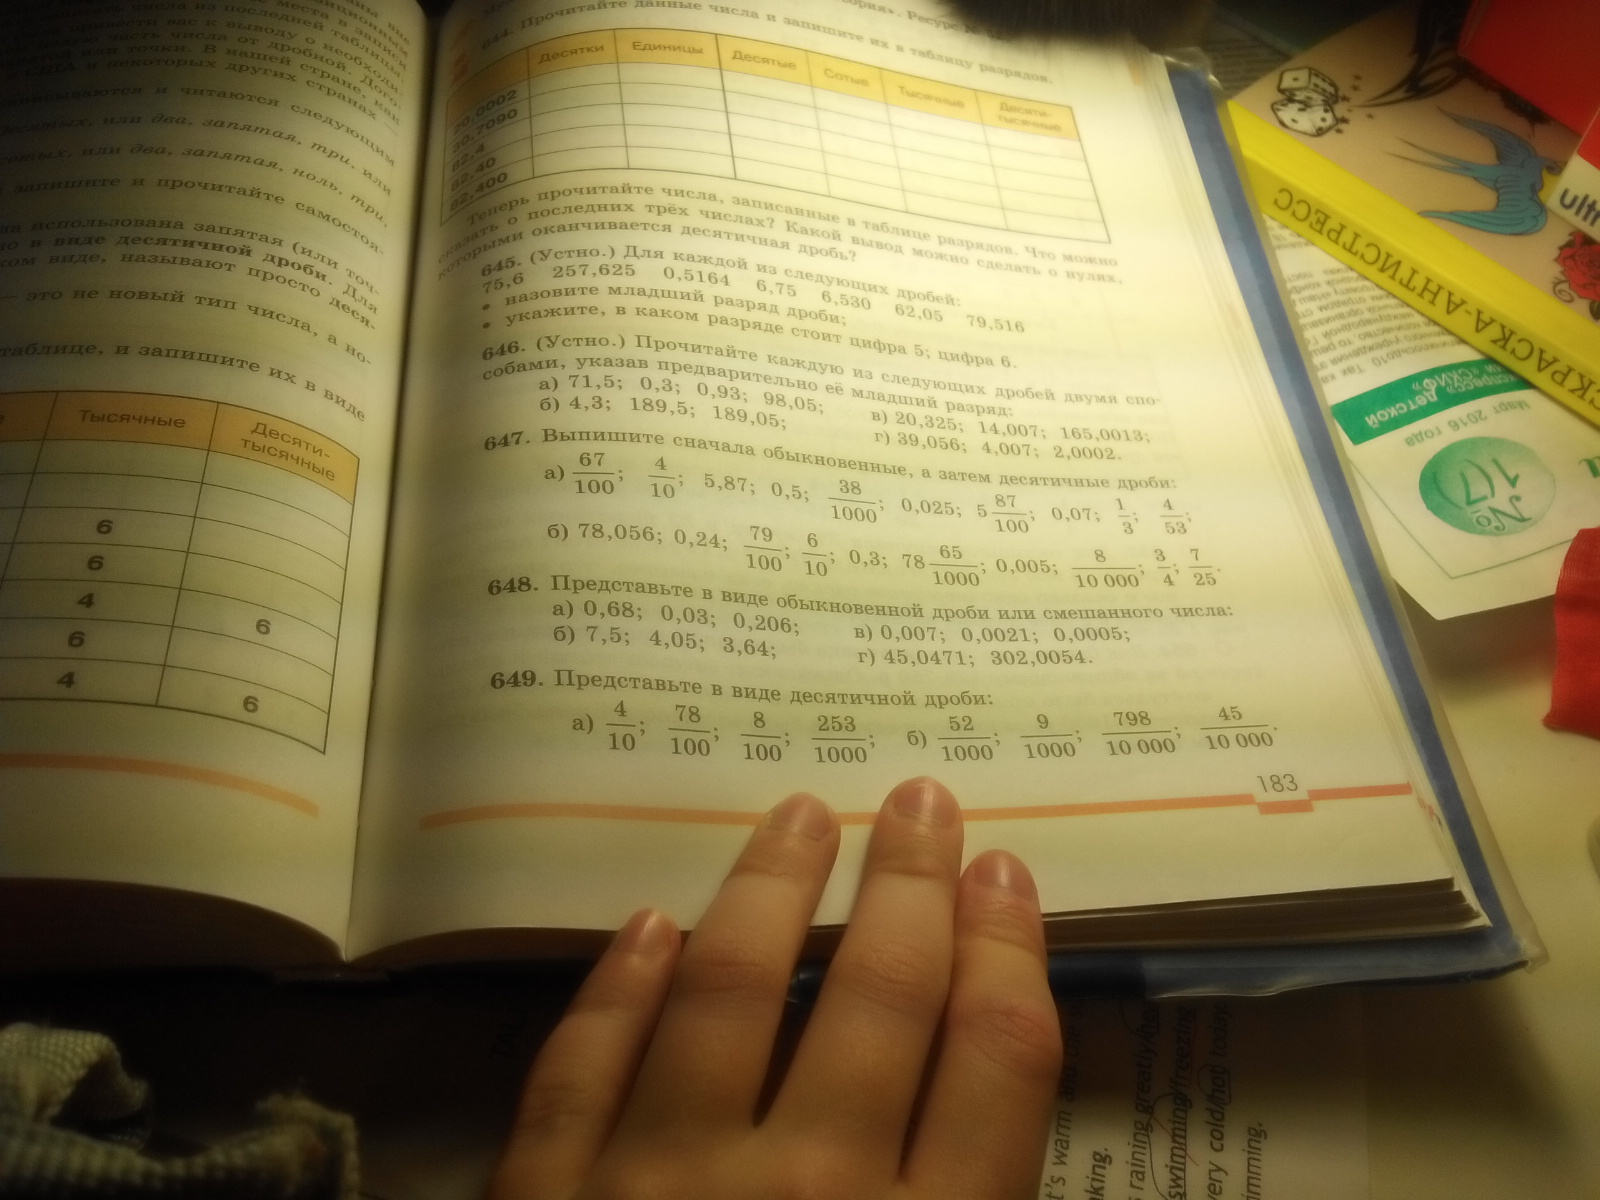 записываются и читаются следующим
десятых, или два, запятая, три, или
сотых, или два, запятая, ноль, три.
запишите и прочитайте самостоя-
использована запятая (или точ-
в виде десятичной дроби. Для
виде, называют просто деся-
— это не новый тип числа, а но-
таблице, и запишите их в виде
Тысячные Десяти-
тысячные
6
6
4 6
6
4 6
644. Прочитайте данные числа и запишите их в таблицу разрядов.
Десятки Единицы Десятые Сотые Тысячные Десяти-
тысячные
20,0002
30,7090
82,4
82,40
82,400
Теперь прочитайте числа, записанные в таблице разрядов. Что можно
сказать о последних трёх числах? Какой вывод можно сделать о нулях,
которыми оканчивается десятичная дробь?
645. (Устно.) Для каждой из следующих дробей:
75,6 257,625 0,5164 6,75 6,530 62,05 79,516
• назовите младший разряд дроби;
• укажите, в каком разряде стоит цифра 5; цифра 6.
646. (Устно.) Прочитайте каждую из следующих дробей двумя спо-
собами, указав предварительно её младший разряд:
а) 71,5; 0,3; 0,93; 98,05; в) 20,325; 14,007; 165,0013;
б) 4,3; 189,5; 189,05; г) 39,056; 4,007; 2,0002.
647. Выпишите сначала обыкновенные, а затем десятичные дроби:
а) 67/100; 4/10; 5,87; 0,5; 38/1000; 0,025; 5 87/100; 0,07; 1/3; 4/53;
б) 78,056; 0,24; 79/100; 6/10; 0,3; 78 65/1000; 0,005; 8/10 000; 3/4; 7/25.
648. Представьте в виде обыкновенной дроби или смешанного числа:
а) 0,68; 0,03; 0,206; в) 0,007; 0,0021; 0,0005;
б) 7,5; 4,05; 3,64; г) 45,0471; 302,0054.
649. Представьте в виде десятичной дроби:
а) 4/10; 78/100; 8/100; 253/1000; б) 52/1000; 9/1000; 798/10 000; 45/10 000.
183
СКРАСКА-АНТИСТРЕСС
ultr
детской
Март 2016 года
№
1(7)
t's warm and
king.
raining greatly
swimming/freezing
very cold/hot today
imming.